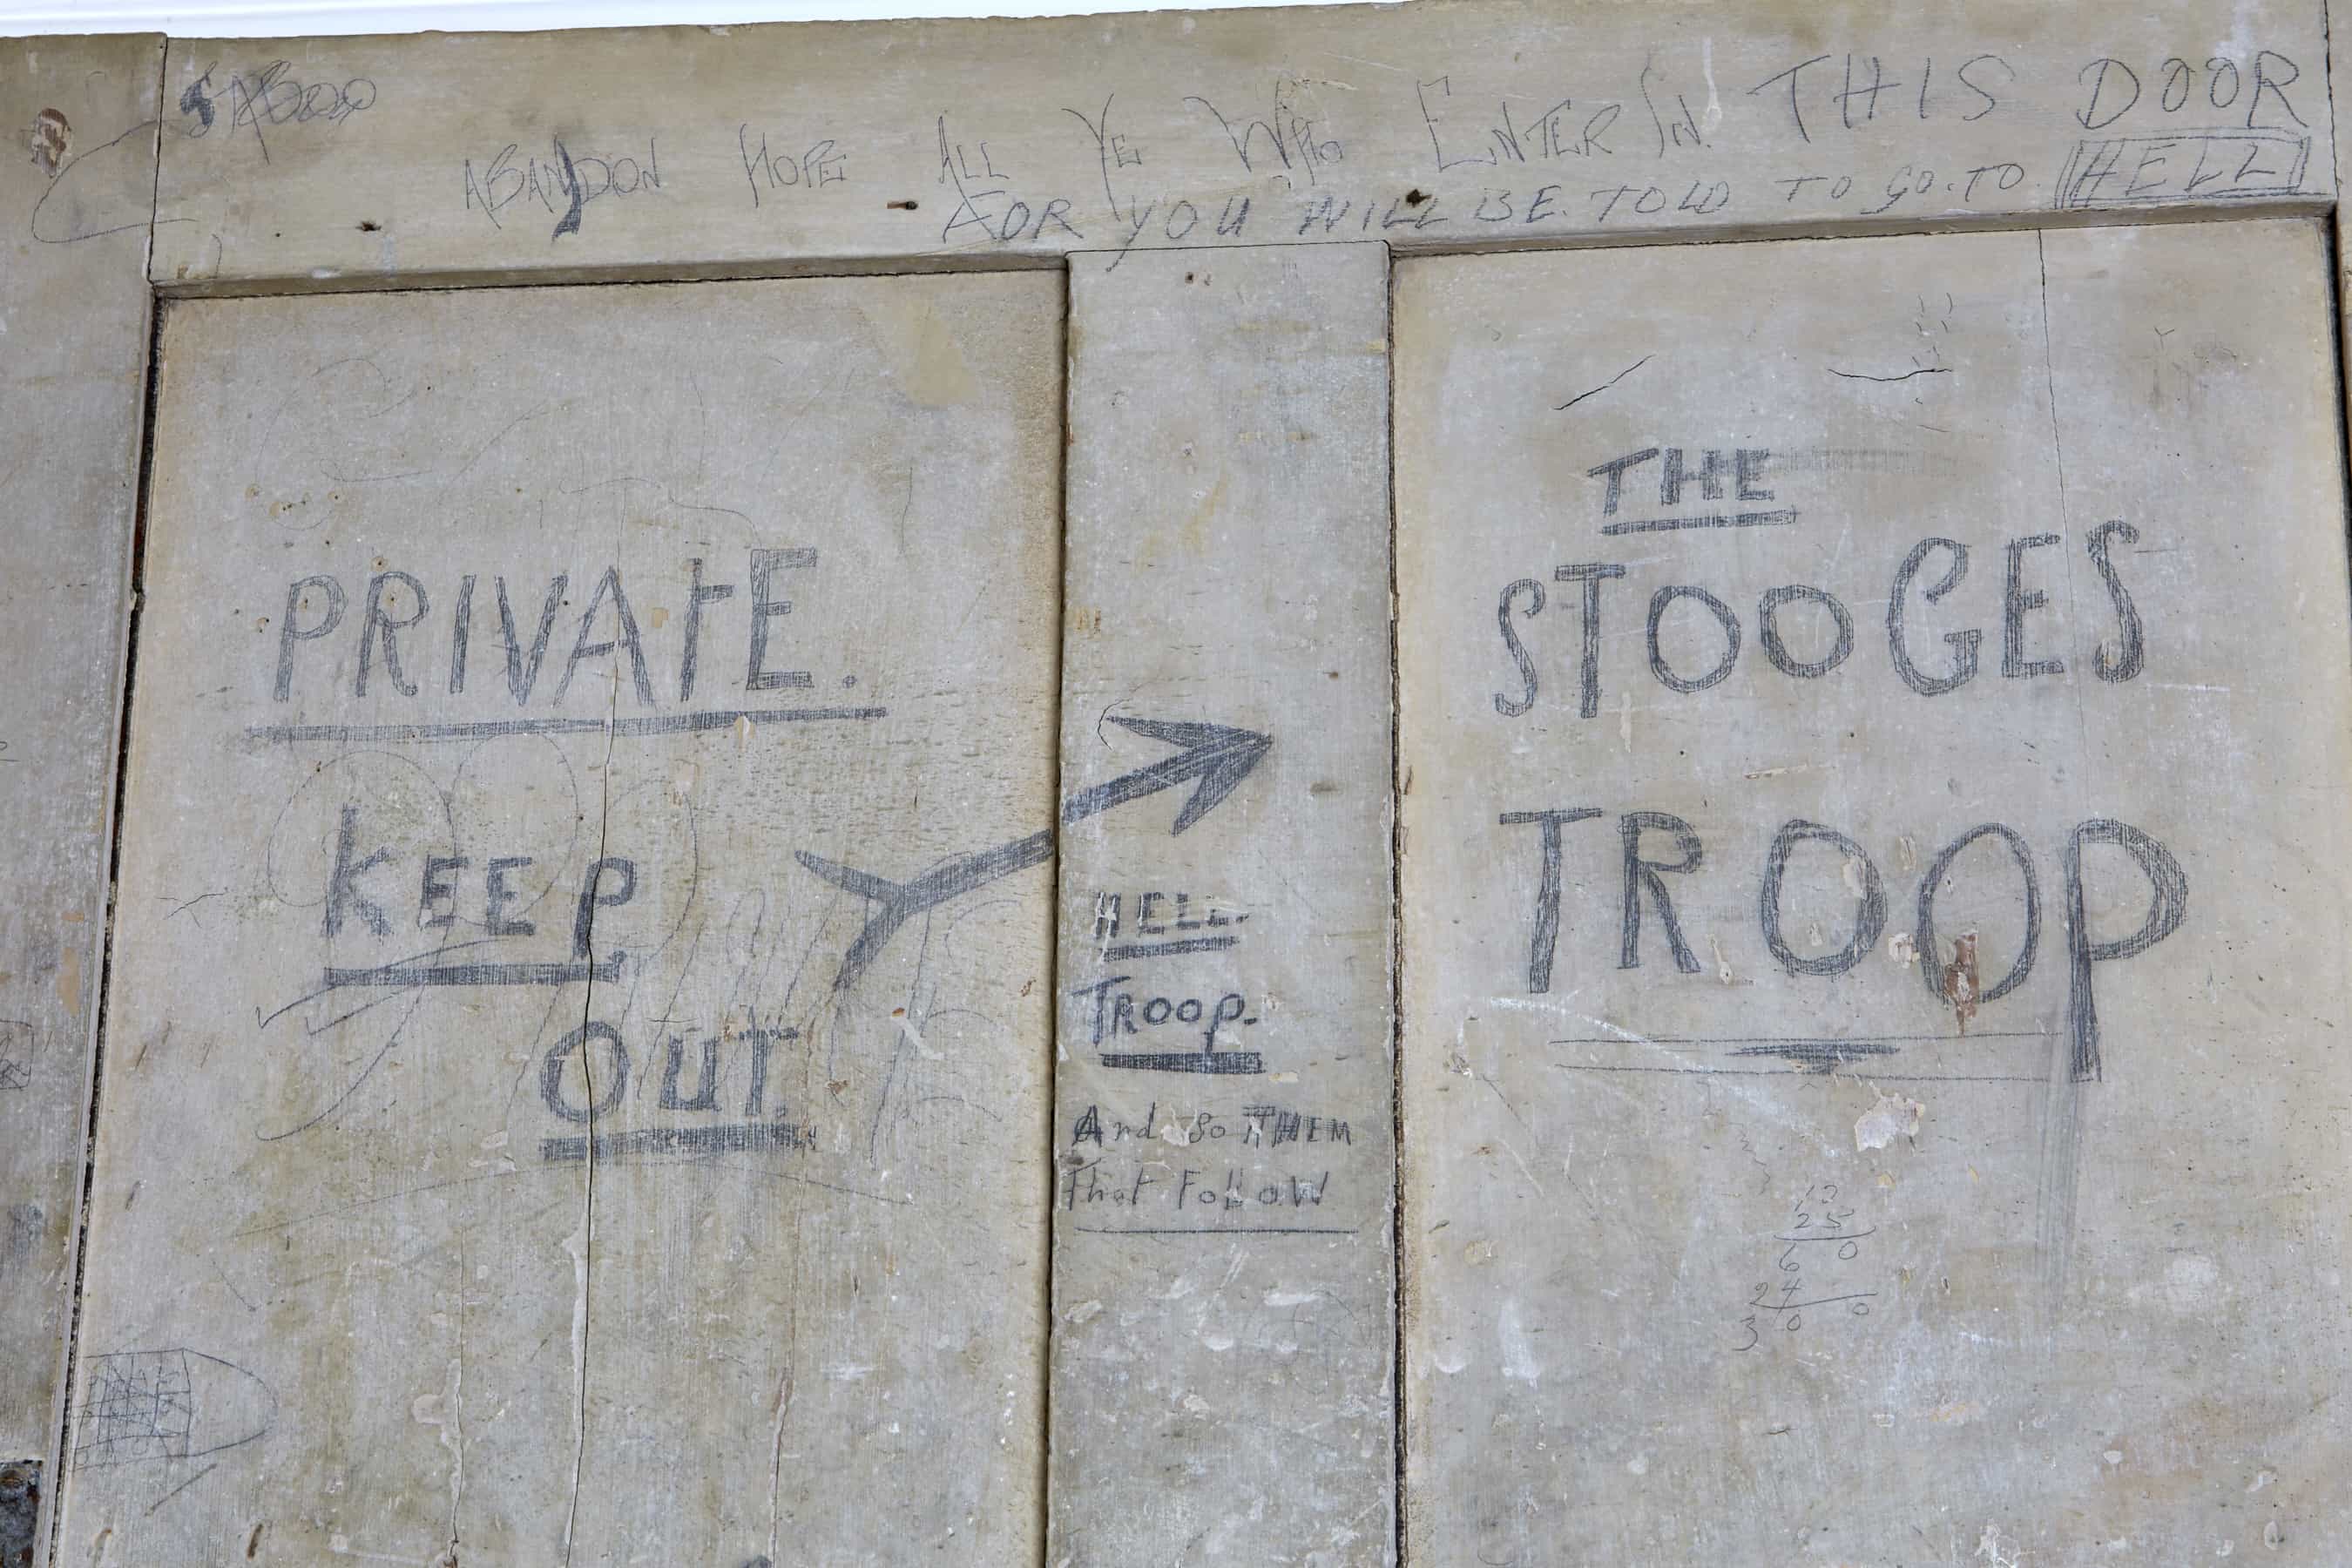 ABANDON HOPE ALL YE WHO ENTER IN. THIS DOOR
FOR YOU WILL BE. TOLD TO GO. TO HELL
PRIVATE.
KEEP
OUT.
HELL
TROOP.
And so THEM
That FolloW
THE
STOOGES
TROOP
12
25
6 0
24 0
3 0 0